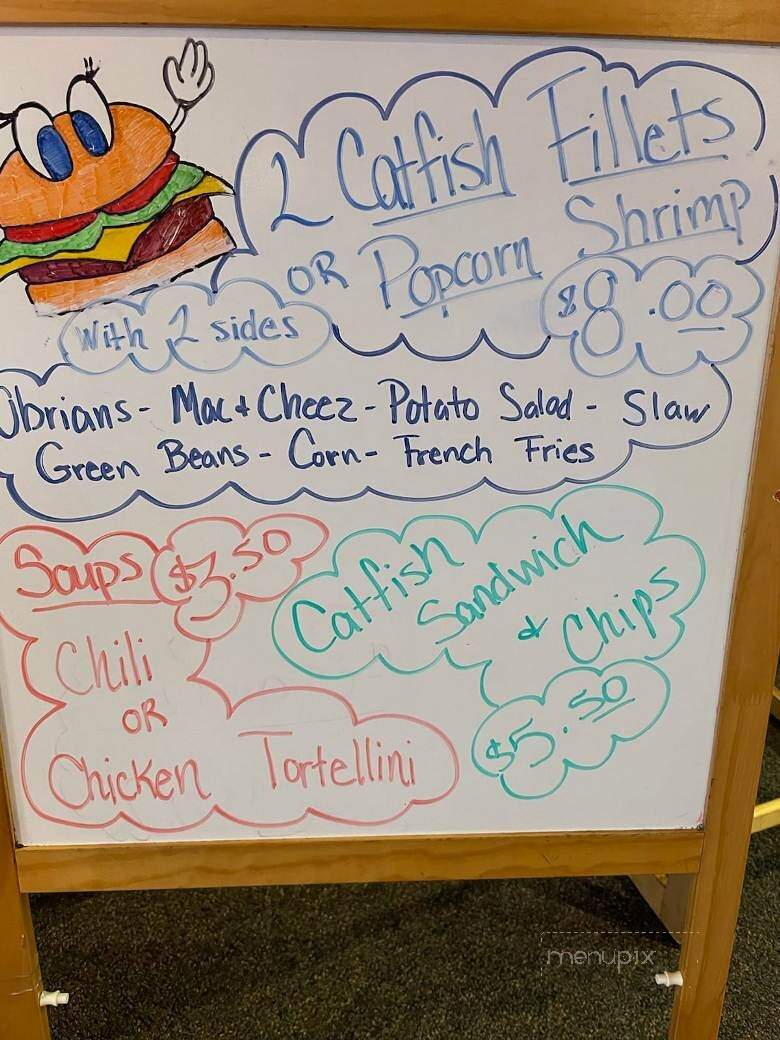 2 Catfish Fillets
OR Popcorn Shrimp
$8.00
With 2 sides
Obrians - Mac + Cheez - Potato Salad - Slaw
Green Beans - Corn - French Fries
Soups $3.50
Chili
OR
Chicken Tortellini
Catfish
Sandwich
+ Chips
$5.50
menupix